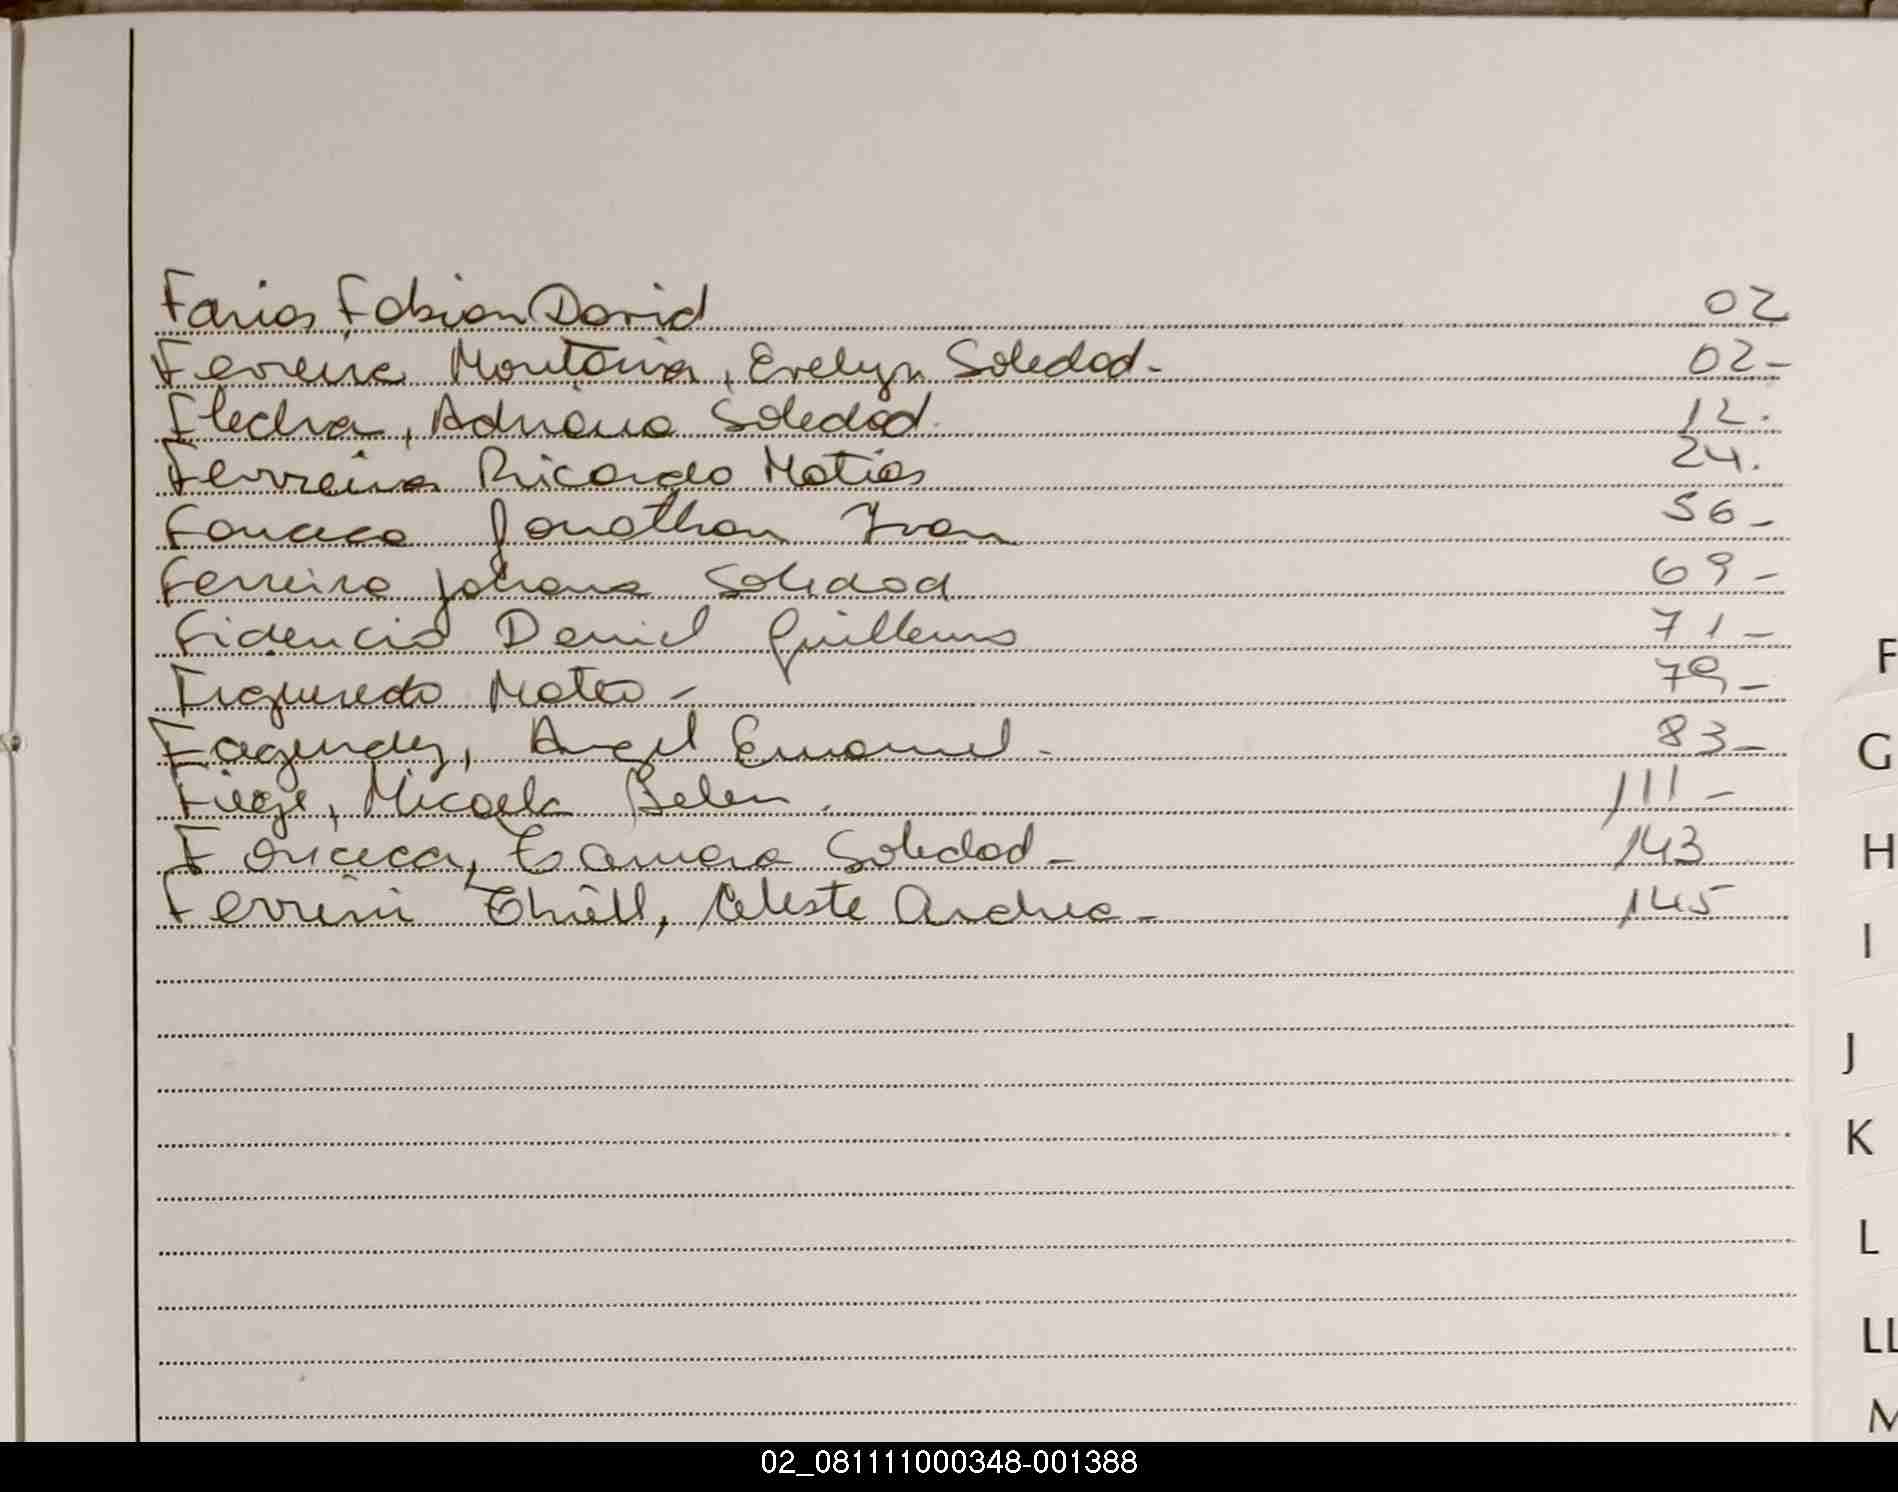 Farias Fabian David 02
Ferreira Montania, Evelyn Soledad- 02-
Flecha, Adriana Soledad. 12.
Ferreira Ricardo Matias 24.
Fonceca Jonathan Ivan 56-
Ferreira Johana Soledad 69-
Fidencio Daniel Guillermo 71-
Figueredo Mateo- 79-
Fagundez, Angel Emanuel- 83-
Micaela Belen. 111-
Fonceca, Tamara Soledad- 143
Ferreira Celeste Andrea- 145
F
G
H
I
J
K
L
LL
M
02_081111000348-001388